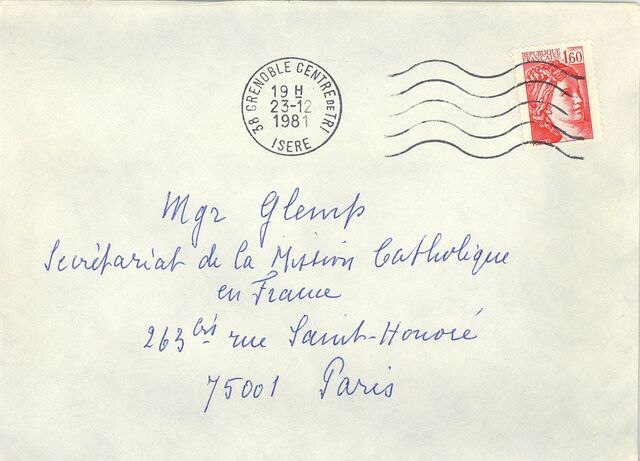 38 GRENOBLE CENTRE DE TRI
19 H
23-12
1981
ISERE
REPUBLIQUE
FRANÇAISE 1,60
Mgr Glemp
Secrétariat de la Mission Catholique
en France
263 bis rue Saint-Honoré
75001 Paris